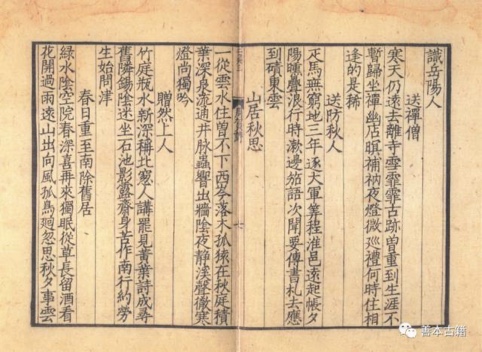 識岳陽人
送禪僧
寒天仍遠去離寺雪霏霏古跡曾重到生涯不
暫歸坐禪幽店暝補衲夜燈微巡禮何時住相
逢的是稀
送防秋人
疋馬無窮地三年逐大軍筭程淮邑遠起帳夕
陽曛疊浪行時漱邊笳語次聞要傳書札去應
到磧東雲
山居秋思
一從雲水住曾不下西岑落木孤猿在秋庭積
葉深泉流通井脉蟲響出牆陰夜靜溪聲徹寒
燈尚獨吟
贈然上人
竹庭瓶水新深稱北窓人講罷見黃葉詩成尋
舊隣錫陰迷坐石池影露齋身苦作南行約勞
生始問津
春日重至南除舊居
綠水陰空院春深喜再來獨眠從草長留酒看
花開過雨遠山出向風孤鳥廻忽思秋夕事雲
善本古籍